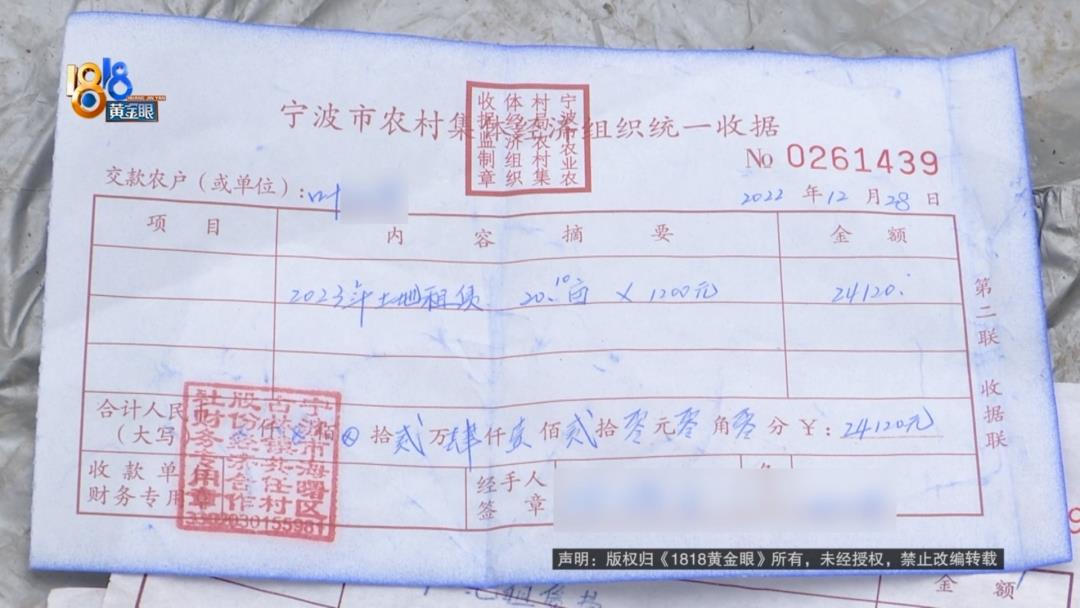 1818
黄金眼
宁波市农村集体经济组织统一收据
宁波市农业农
村局农村集
体经济组织
收据监制章
No 0261439
交款农户（或单位）：叶
2022 年 12 月 28 日
项 目 内 容 摘 要 金 额
2023年土地租赁 20.10亩 × 1200元 24120.
第二联 收据联
合计人民
（大写） 仟 佰 拾 贰 万 肆 仟 壹 佰 贰 拾 零 元 零 角 零 分 ￥：24120元
宁波市海曙区
股份经济合作
社财务专用章
收款单
财务专用
经手人
签 章
声明：版权归《1818黄金眼》所有，未经授权，禁止改编转载
金 额